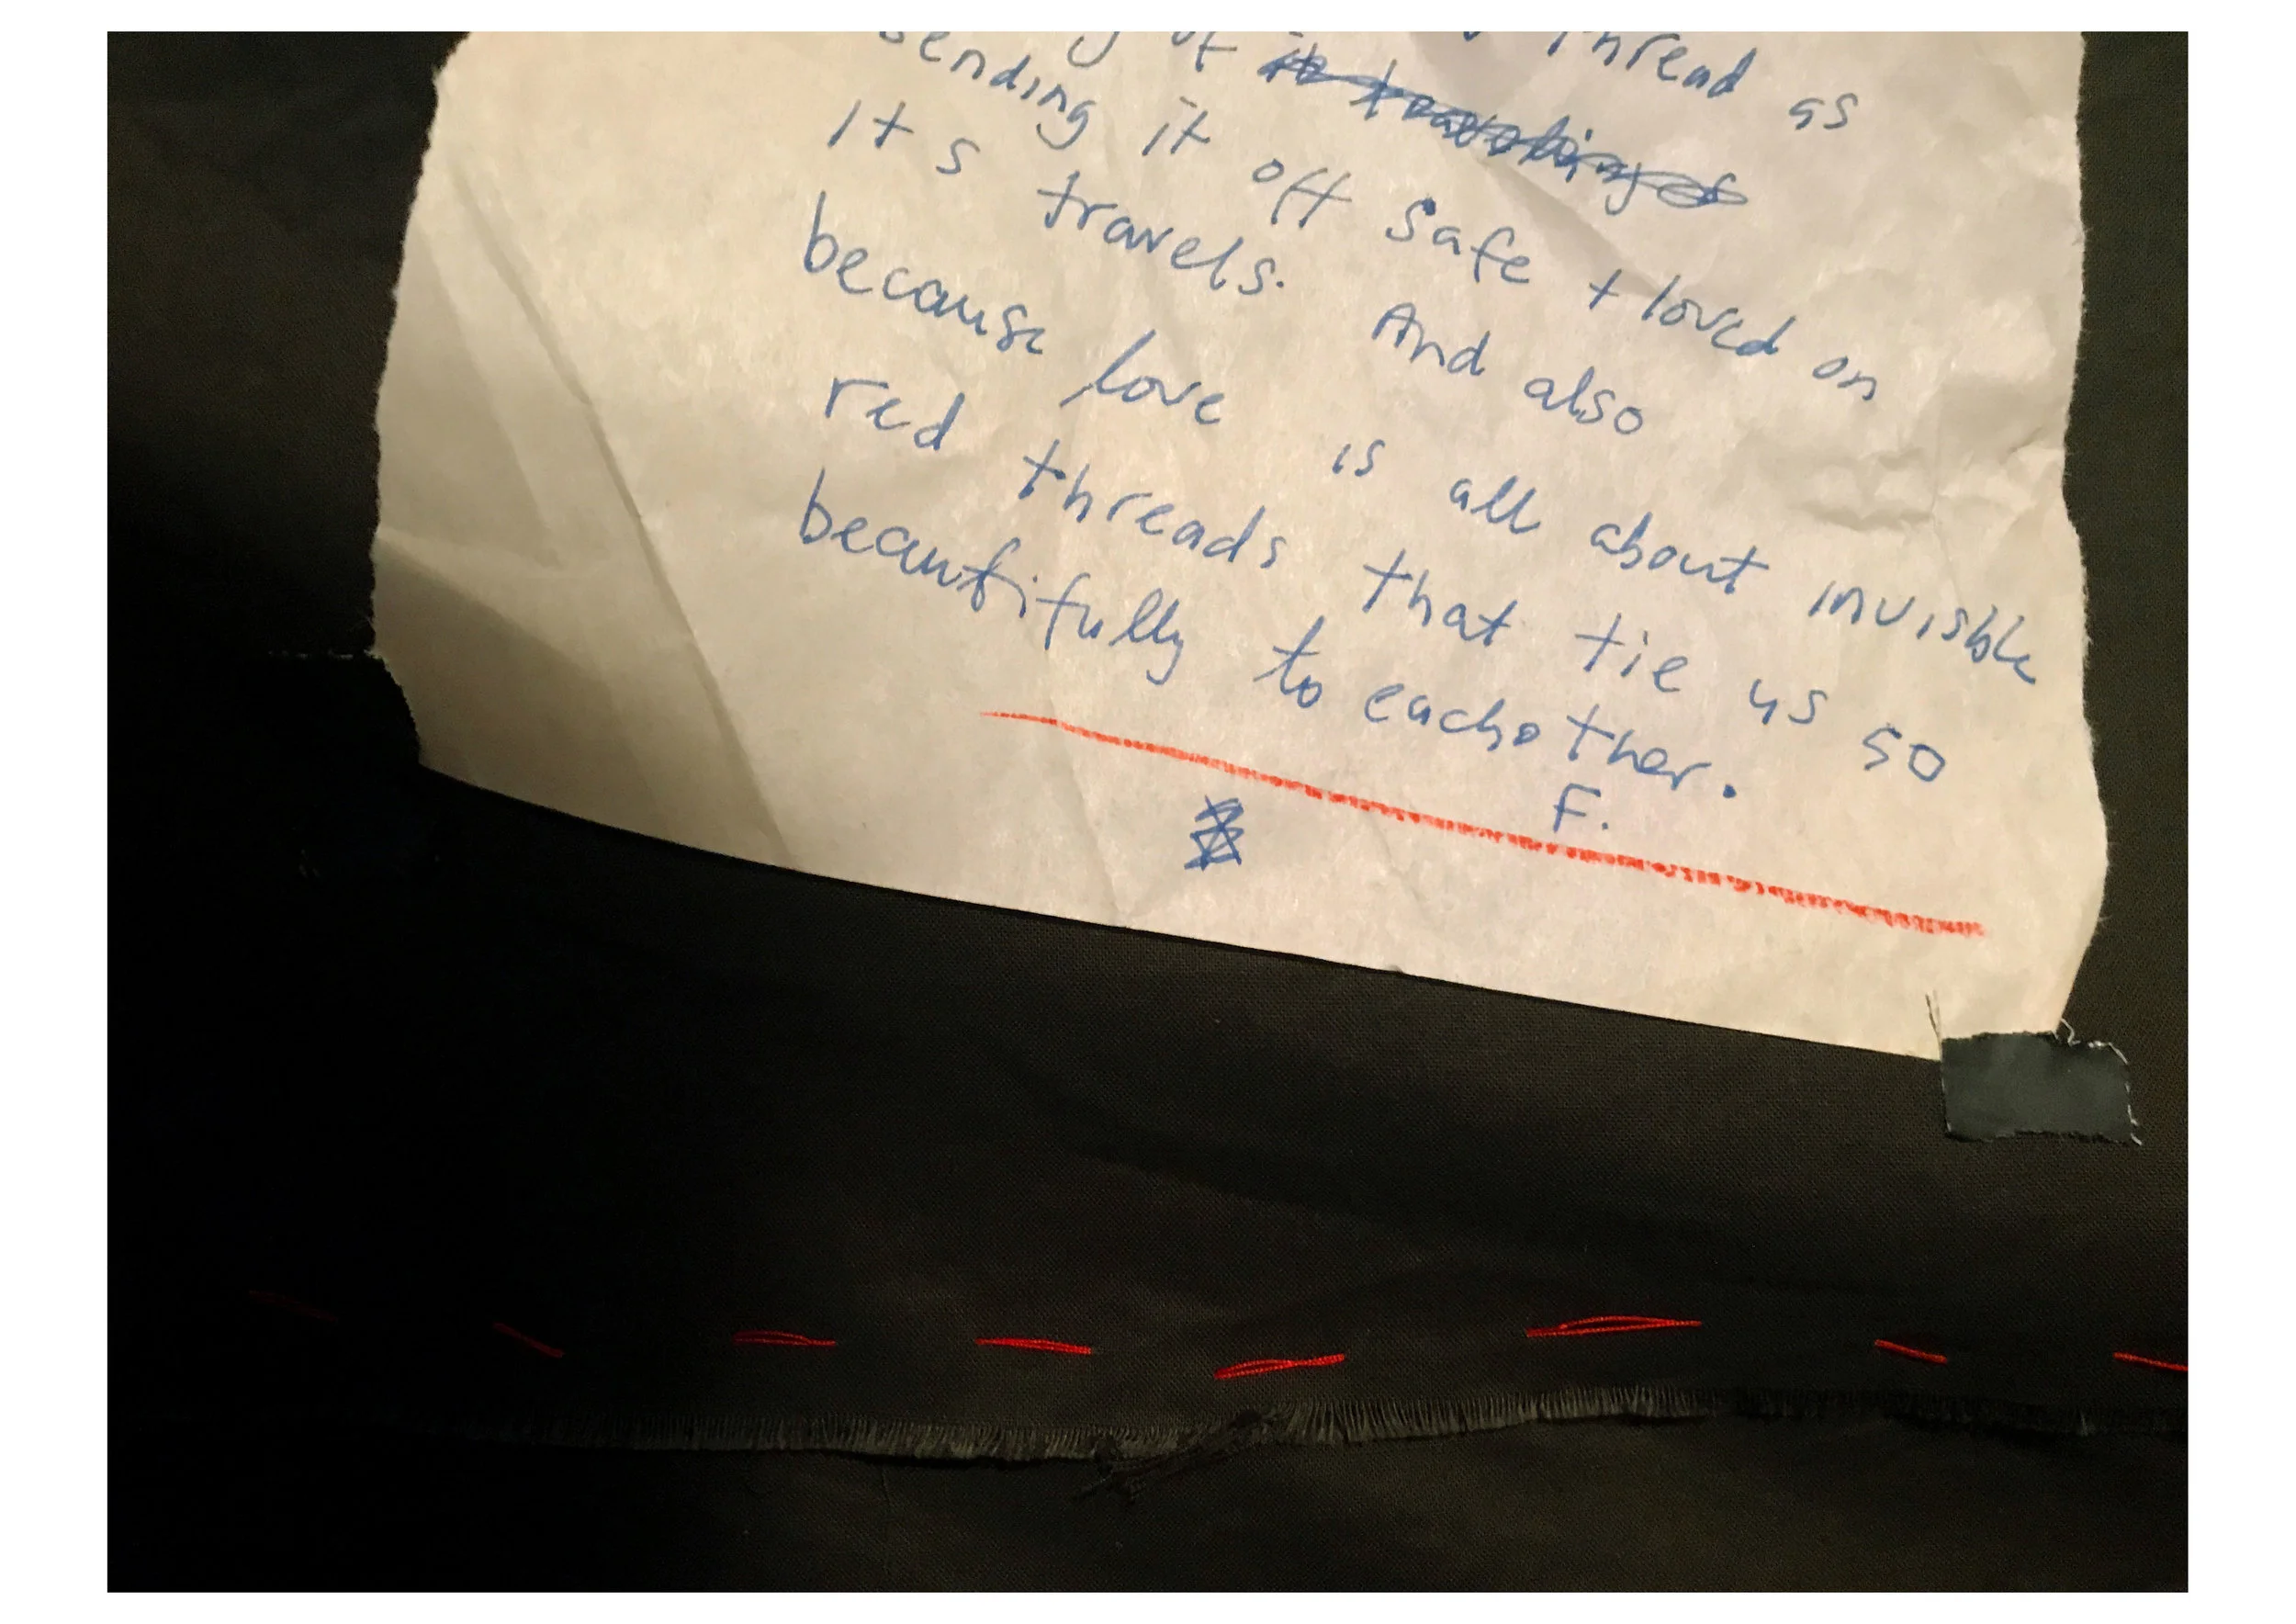 thread as
of
sending it off safe + loved on
it s travels. And also
because love is all about invisible
red threads that tie us so
beautifully to eachother.
F.